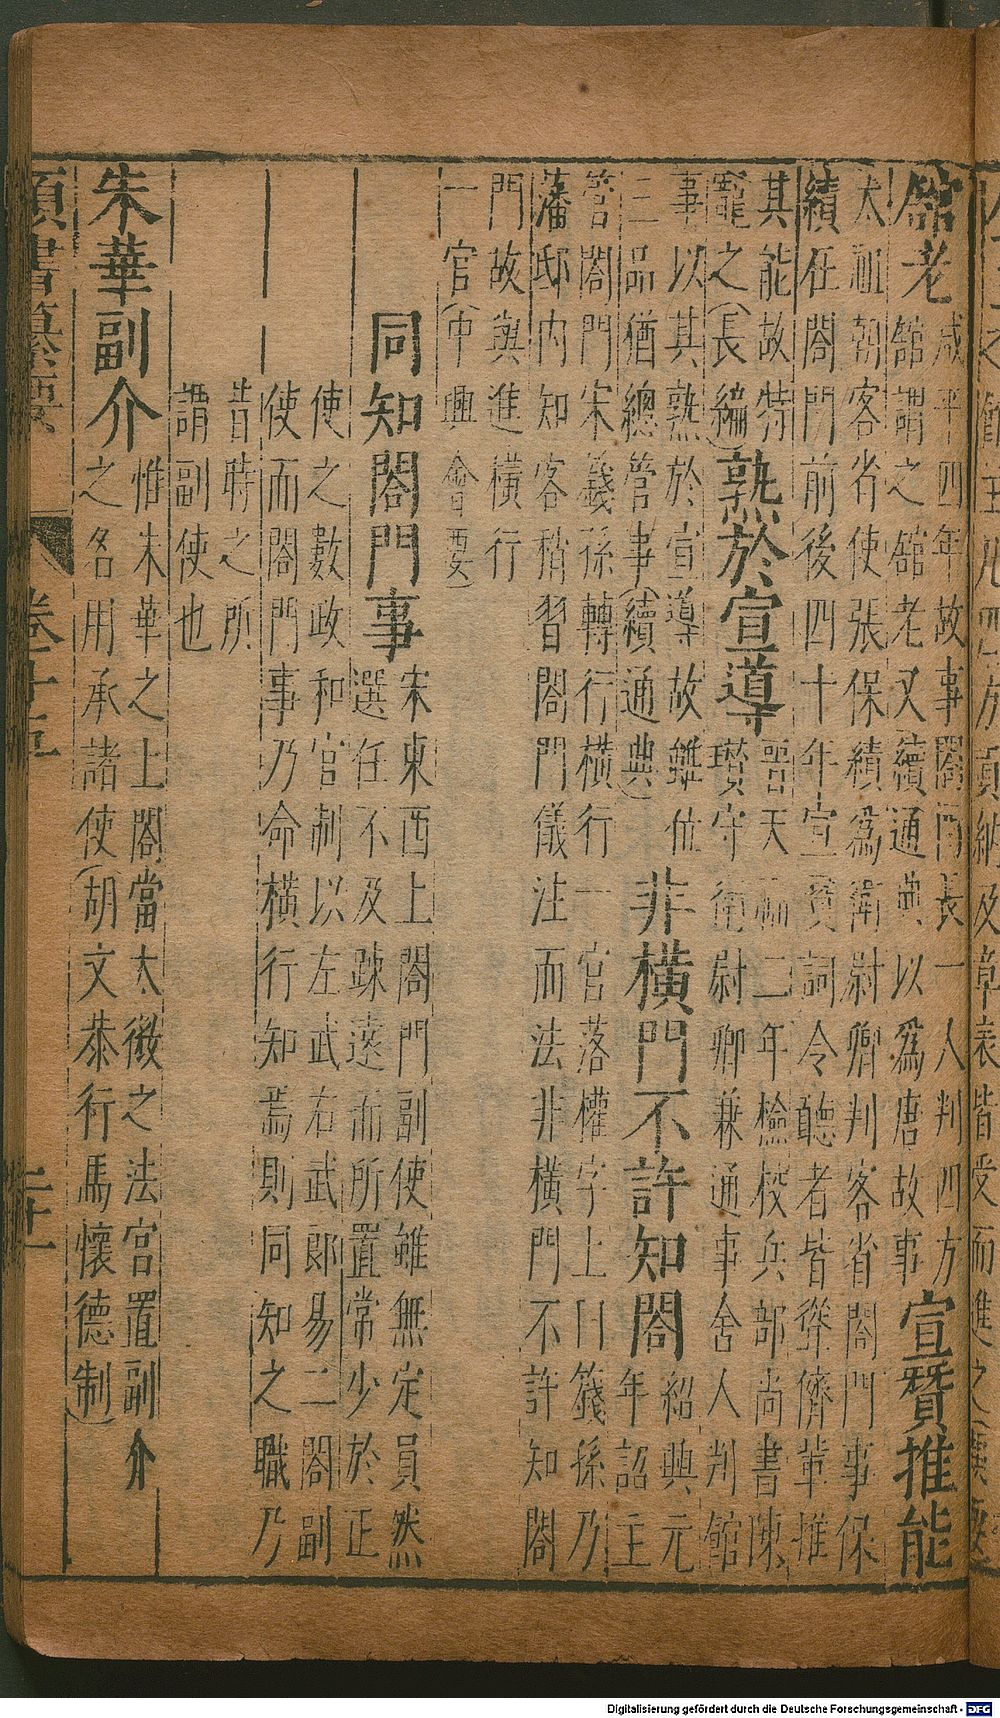 四方貢納及章表皆受而進之
舘老
咸平四年故事閤門長一人判四方
舘謂之舘老又續通典以為唐故事
宣贊推能
太祖朝客省使張保續為衛尉卿判客省閤門事保
續在閤門前後四十年宣贊詞令聽者皆聳儕輩推
其能故特
寵之(長編)
熟於宣導
晋天福二年檢校兵部尚書陳
瓚守衛尉卿兼通事舍人判舘
事以其熟於宣導故雖位
三品猶總管事(續通典)
非橫門不許知閤
紹興元
年詔主
管閤門宋籛孫轉行橫行一官落權字上曰籛孫乃
藩邸內知客稍習閤門儀注而法非橫門不許知閤
門故與進橫行
一官(中興會要)
同知閤門事
宋東西上閤門副使雖無定員然
選任不及踈遠而所置常少於正
使之數政和官制以左武右武郎易二閤副
使而閤門事乃命橫行知焉則同知之職乃
昔時之所
謂副使也
朱華副介
惟朱華之上閤當太微之法宮置副介
之名用承諸使(胡文恭行馬懷德制)
類書纂要
卷十五
二十一
Digitalisierung gefördert durch die Deutsche Forschungsgemeinschaft - DFG